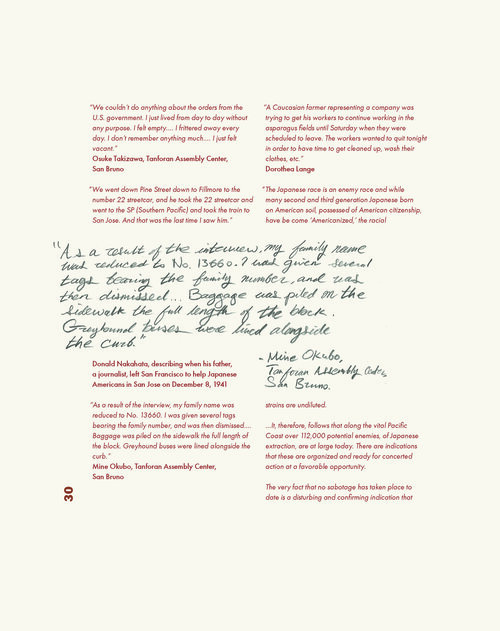 "We couldn't do anything about the orders from the
U.S. government. I just lived from day to day without
any purpose. I felt empty.... I frittered away every
day. I don't remember anything much.... I just felt
vacant."
Osuke Takizawa, Tanforan Assembly Center,
San Bruno
"We went down Pine Street down to Fillmore to the
number 22 streetcar, and he took the 22 streetcar and
went to the SP (Southern Pacific) and took the train to
San Jose. And that was the last time I saw him."
"A Caucasian farmer representing a company was
trying to get his workers to continue working in the
asparagus fields until Saturday when they were
scheduled to leave. The workers wanted to quit tonight
in order to have time to get cleaned up, wash their
clothes, etc."
Dorothea Lange
"The Japanese race is an enemy race and while
many second and third generation Japanese born
on American soil, possessed of American citizenship,
have be come 'Americanized,' the racial
"As a result of the interview, my family name
was reduced to No. 13660. I was given several
tags bearing the family number, and was
then dismissed... Baggage was piled on the
sidewalk the full length of the block.
Greyhound buses were lined alongside
the curb."
- Mine Okubo,
Tanforan Assembly Center,
San Bruno.
Donald Nakahata, describing when his father,
a journalist, left San Francisco to help Japanese
Americans in San Jose on December 8, 1941
"As a result of the interview, my family name was
reduced to No. 13660. I was given several tags
bearing the family number, and was then dismissed....
Baggage was piled on the sidewalk the full length of
the block. Greyhound buses were lined alongside the
curb."
Mine Okubo, Tanforan Assembly Center,
San Bruno
strains are undiluted.
...It, therefore, follows that along the vital Pacific
Coast over 112,000 potential enemies, of Japanese
extraction, are at large today. There are indications
that these are organized and ready for concerted
action at a favorable opportunity.
The very fact that no sabotage has taken place to
date is a disturbing and confirming indication that
30